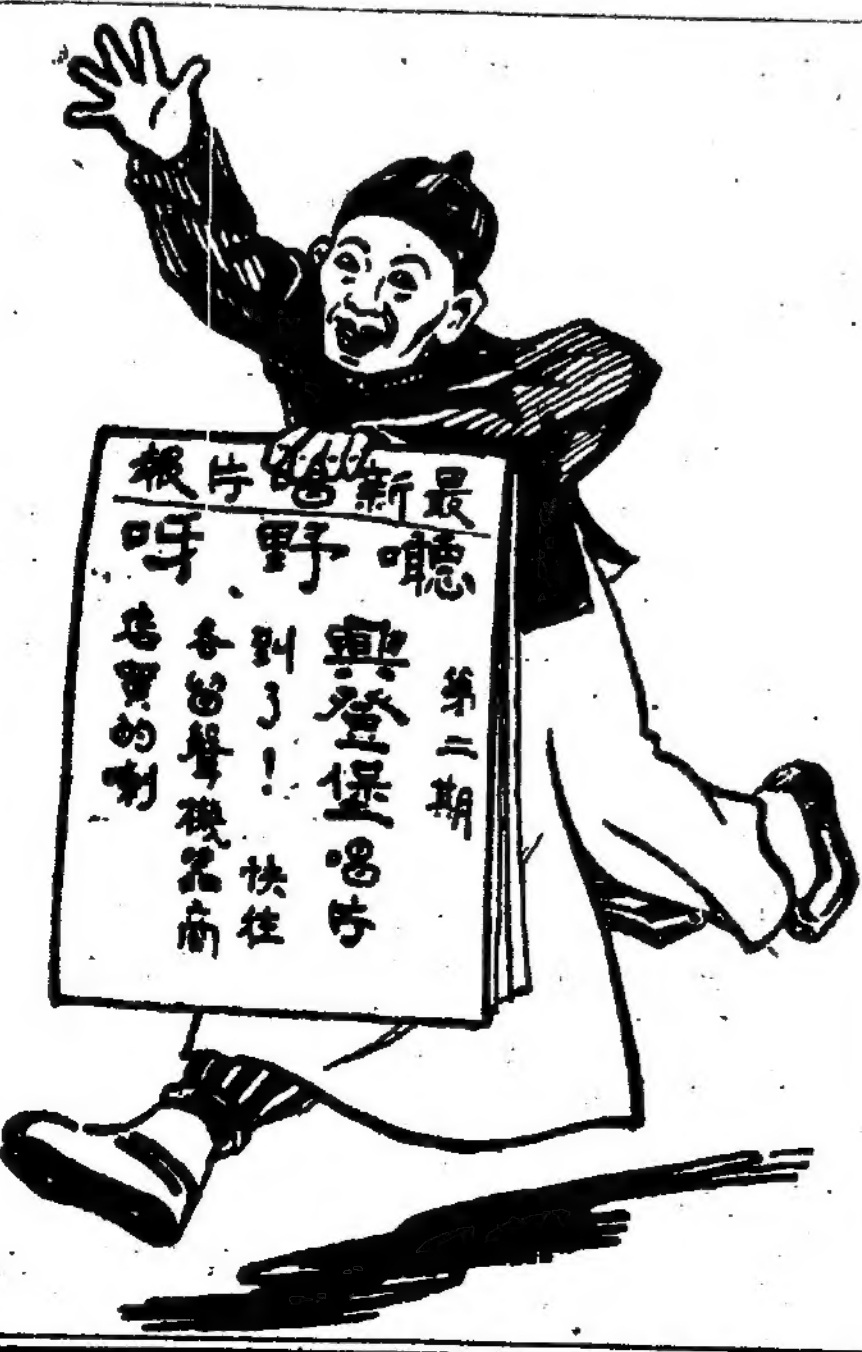 最新唱片報
聽野呀
第二期
興登堡唱片
到了！快往
各留聲機器商
店買的喇